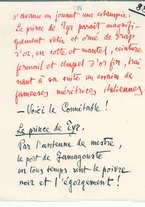 s'avance en jouant une estampie.
Le prince de Tyr paraît magnifi-
quement vêtu et orné de drap
d'or, en cotte et mantel, ceinture
fermail et chapel d'or fin, traî-
nant à sa suite un essaim de
fameuses méretrices italiennes
— Voici le Connétable !
Le prince de Tyr.
Par l'antenne de mestre,
le port de Famagouste
en tous temps sent le poivre
noir et l'égorgement !